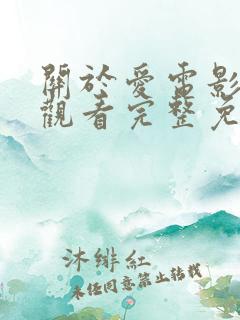 關於愛電影
觀看完整免
沐緋紅
未经同意禁止转载